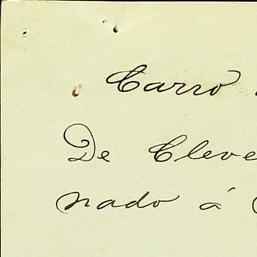 Carro
De Cleve
nado á